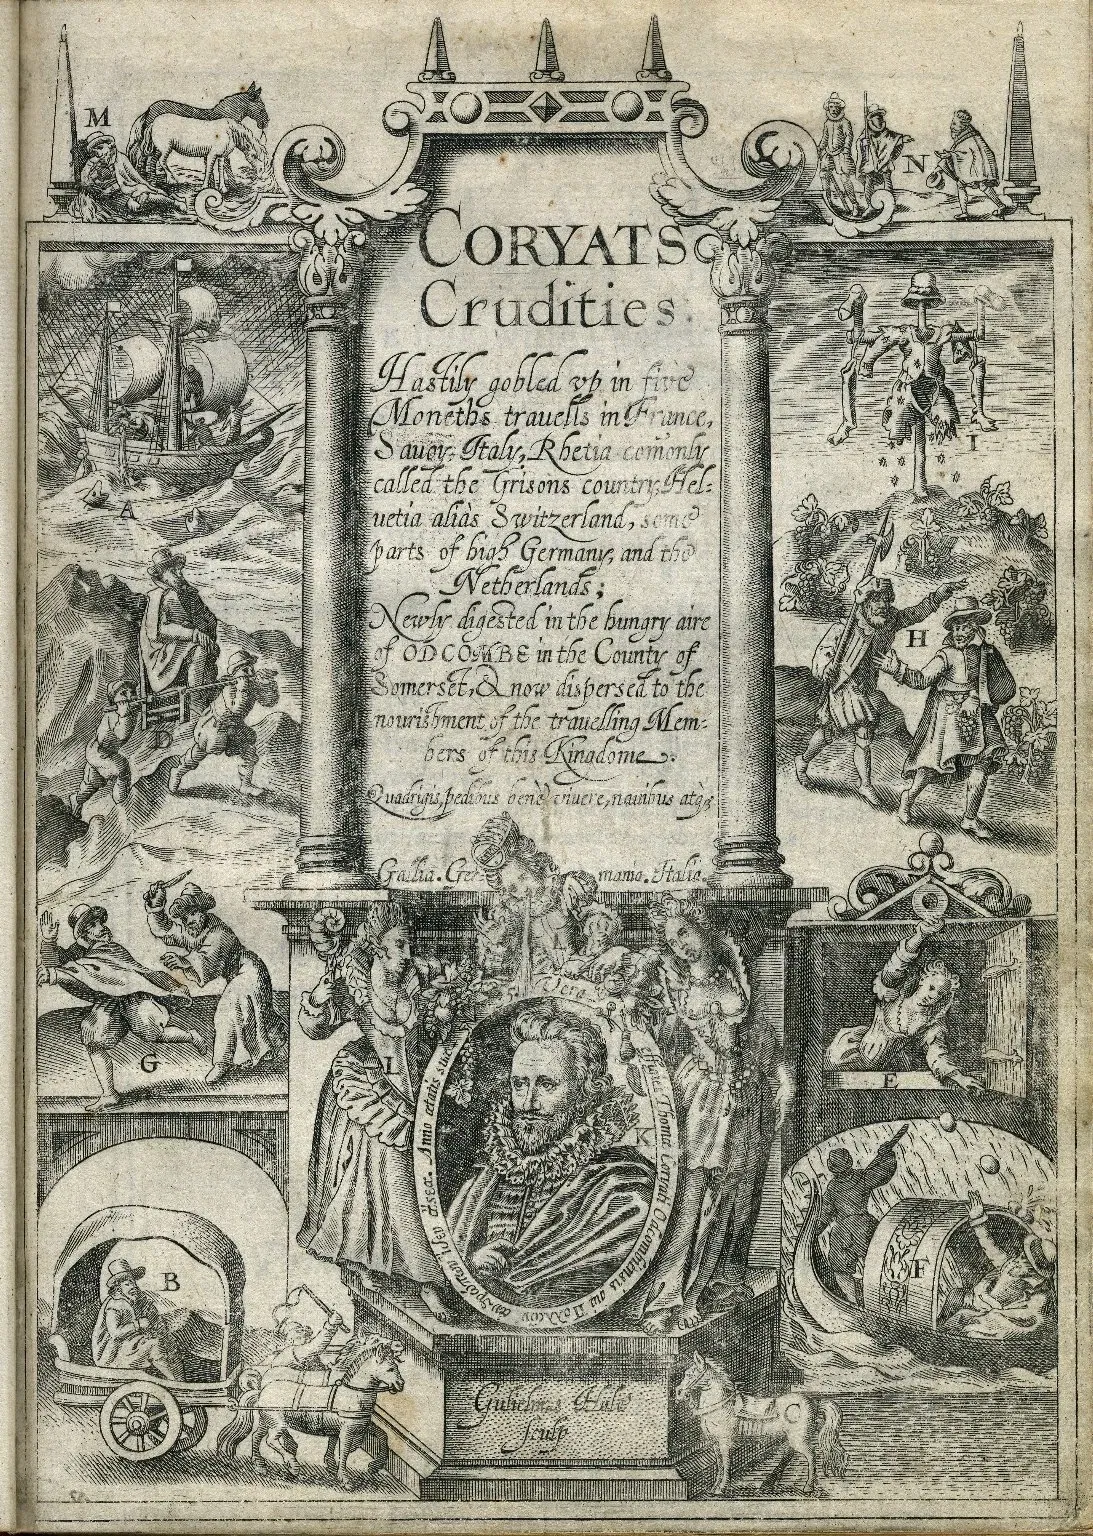 M
N
CORYATS
Crudities
Hastily gobled vp in five
Moneths travells in France,
Savoy, Italy, Rhetia comonly
called the Grisons country, Hel-
vetia aliàs Switzerland, some
parts of high Germany, and the
Netherlands;
Newly digested in the hungry aire
of ODCOMBE in the County of
Somerset, & now dispersed to the
nourishment of the travelling Mem-
bers of this Kingdome.
Quadrigis, pedibus benè vivere, navibus atq;
Gallia. Ger-
mania. Italia.
A
D
G
B
I
H
E
F
C
L
L
K
Vera
effigies Thomæ Coryati Odcombiensis
Anno ætatis suæ
Gulielmus Hole
sculp